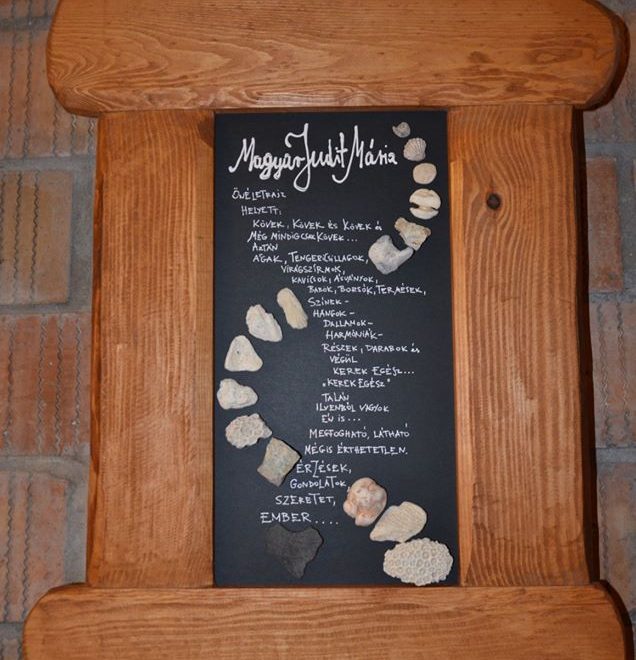 Magyar Judit Mária
ÖNÉLETRAJZ
HELYETT:
KÖVEK, KÖVEK ÉS KÖVEK ÉS
MÉG MINDIG CSAK KÖVEK...
AZTÁN
ÁGAK, TENGERICSILLAGOK,
VIRÁGSZIRMOK,
KAVICSOK, ÁSVÁNYOK,
BABOK, BORSÓK, TERMÉSEK,
SZÍNEK-
HANGOK-
DALLAMOK-
HARMÓNIÁK-
RÉSZEK, DARABOK ÉS
VÉGÜL
KEREK EGÉSZ...
"KEREK EGÉSZ"
TALÁN
ILYENBŐL VAGYOK
ÉN IS...
MEGFOGHATÓ, LÁTHATÓ
MÉGIS ÉRTHETETLEN.
ÉRZÉSEK,
GONDOLATOK
SZERETET,
EMBER....